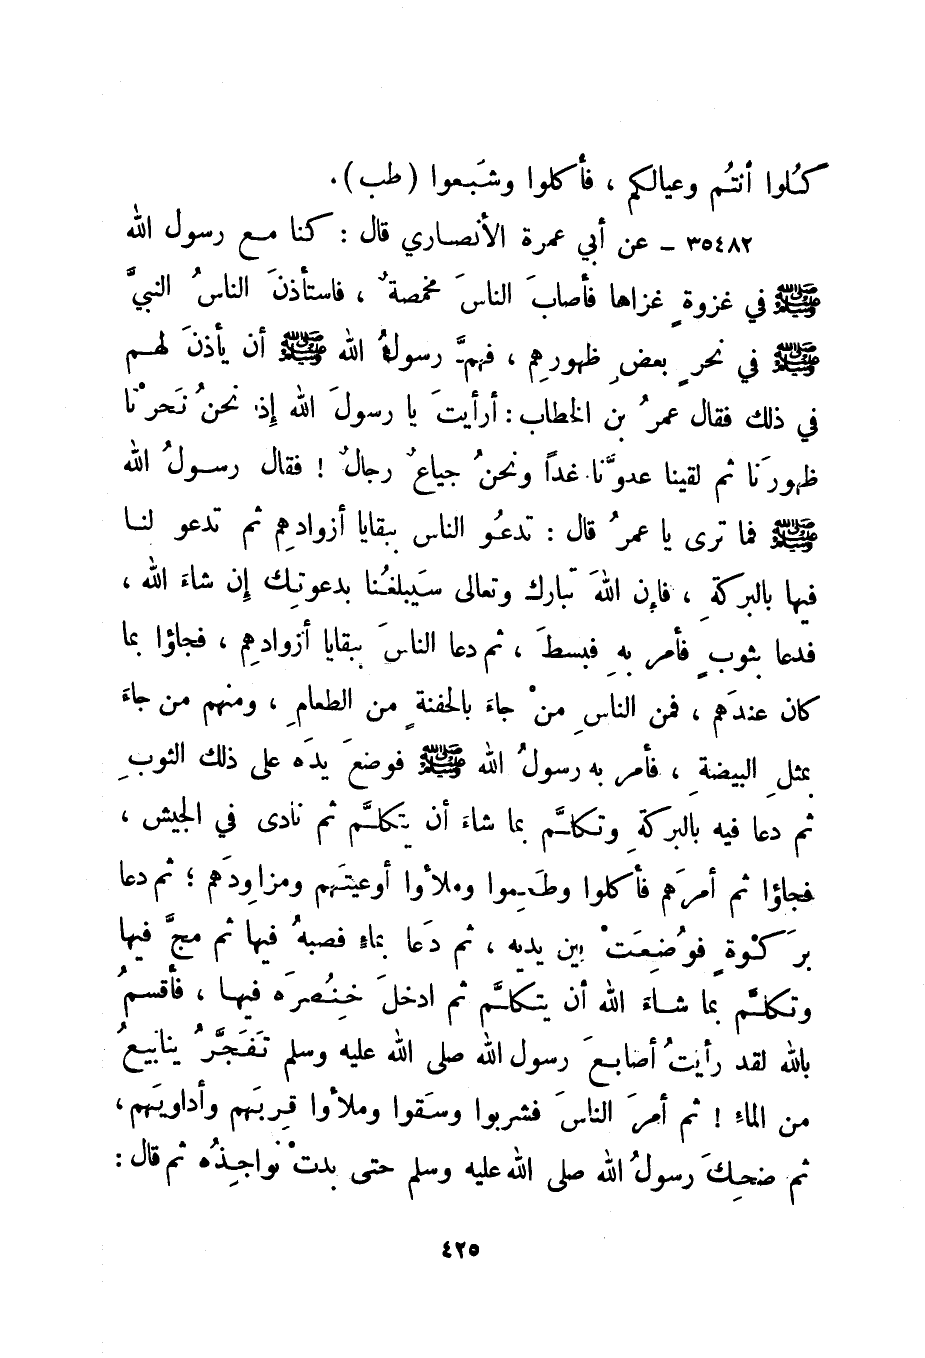 كُلوا أنتُم وعيالكم ، فأكلوا وشَبَعوا (طب).
٣٥٤٨٢ ـ عن أبي عمرة الأنصاري قال : كنا مع رسول الله
ﷺ في غزوةٍ غزاها فأصابَ الناسَ مخمصةٌ ، فاستأذنَ الناسُ النبيَّ
ﷺ في نحرِ بعضِ ظهورِهم ، فهمَّ رسولُ الله ﷺ أن يأذنَ لهم
في ذلك فقال عمرُ بن الخطاب : أرأيتَ يا رسولَ الله إذ نحنُ نَحرْنا
ظهورَنا ثم لقينا عدوَّنا غداً ونحنُ جياعٌ رجالٌ ! فقال رسولُ الله
ﷺ فما ترى يا عمرُ قال : تدعُو الناس ببقايا أزوادِهم ثم تدعو لنا
فيها بالبركةِ ، فإن اللهَ تبارك وتعالى سَيبلغُنا بدعوتِك إن شاءَ الله ،
فدعا بثوبٍ فأمر بهِ فبسطَ ، ثم دعا الناسَ ببقايا أزوادِهم ، فجاؤا بما
كان عندَهم ، فمن الناسِ منْ جاءَ بالحفنةِ من الطعامِ ، ومنهم من جاءَ
بمثلِ البيضةِ ، فأمر به رسولُ الله ﷺ فوضعَ يدَه على ذلك الثوبِ
ثم دعا فيه بالبركةِ وتكلَّم بما شاءَ أن يتكلَّم ثم نادى في الجيش ،
فجاؤا ثم أمرَهم فأكلوا وطَعِموا وملأوا أوعيتَهم ومزاودَهم ؛ ثم دعا
برَكْوةٍ فوُضِعَتْ بين يديه ، ثم دَعا بماءٍ فصبهُ فيها ثم مجَّ فيها
وتكلَّم بما شاءَ الله أن يتكلَّم ثم ادخلَ خِنْصرَه فيها ، فأقسمُ
بالله لقد رأيتُ أصابعَ رسول الله صلى الله عليه وسلم تَفَجَّرُ ينابيعُ
من الماءِ ! ثم أمرَ الناسَ فشربوا وسَقوا وملأوا قِربَهم وأداويَهم،
ثم ضحِكَ رسولُ الله صلى الله عليه وسلم حتى بدتْ نواجِذُه ثم قال :
٤٢٥